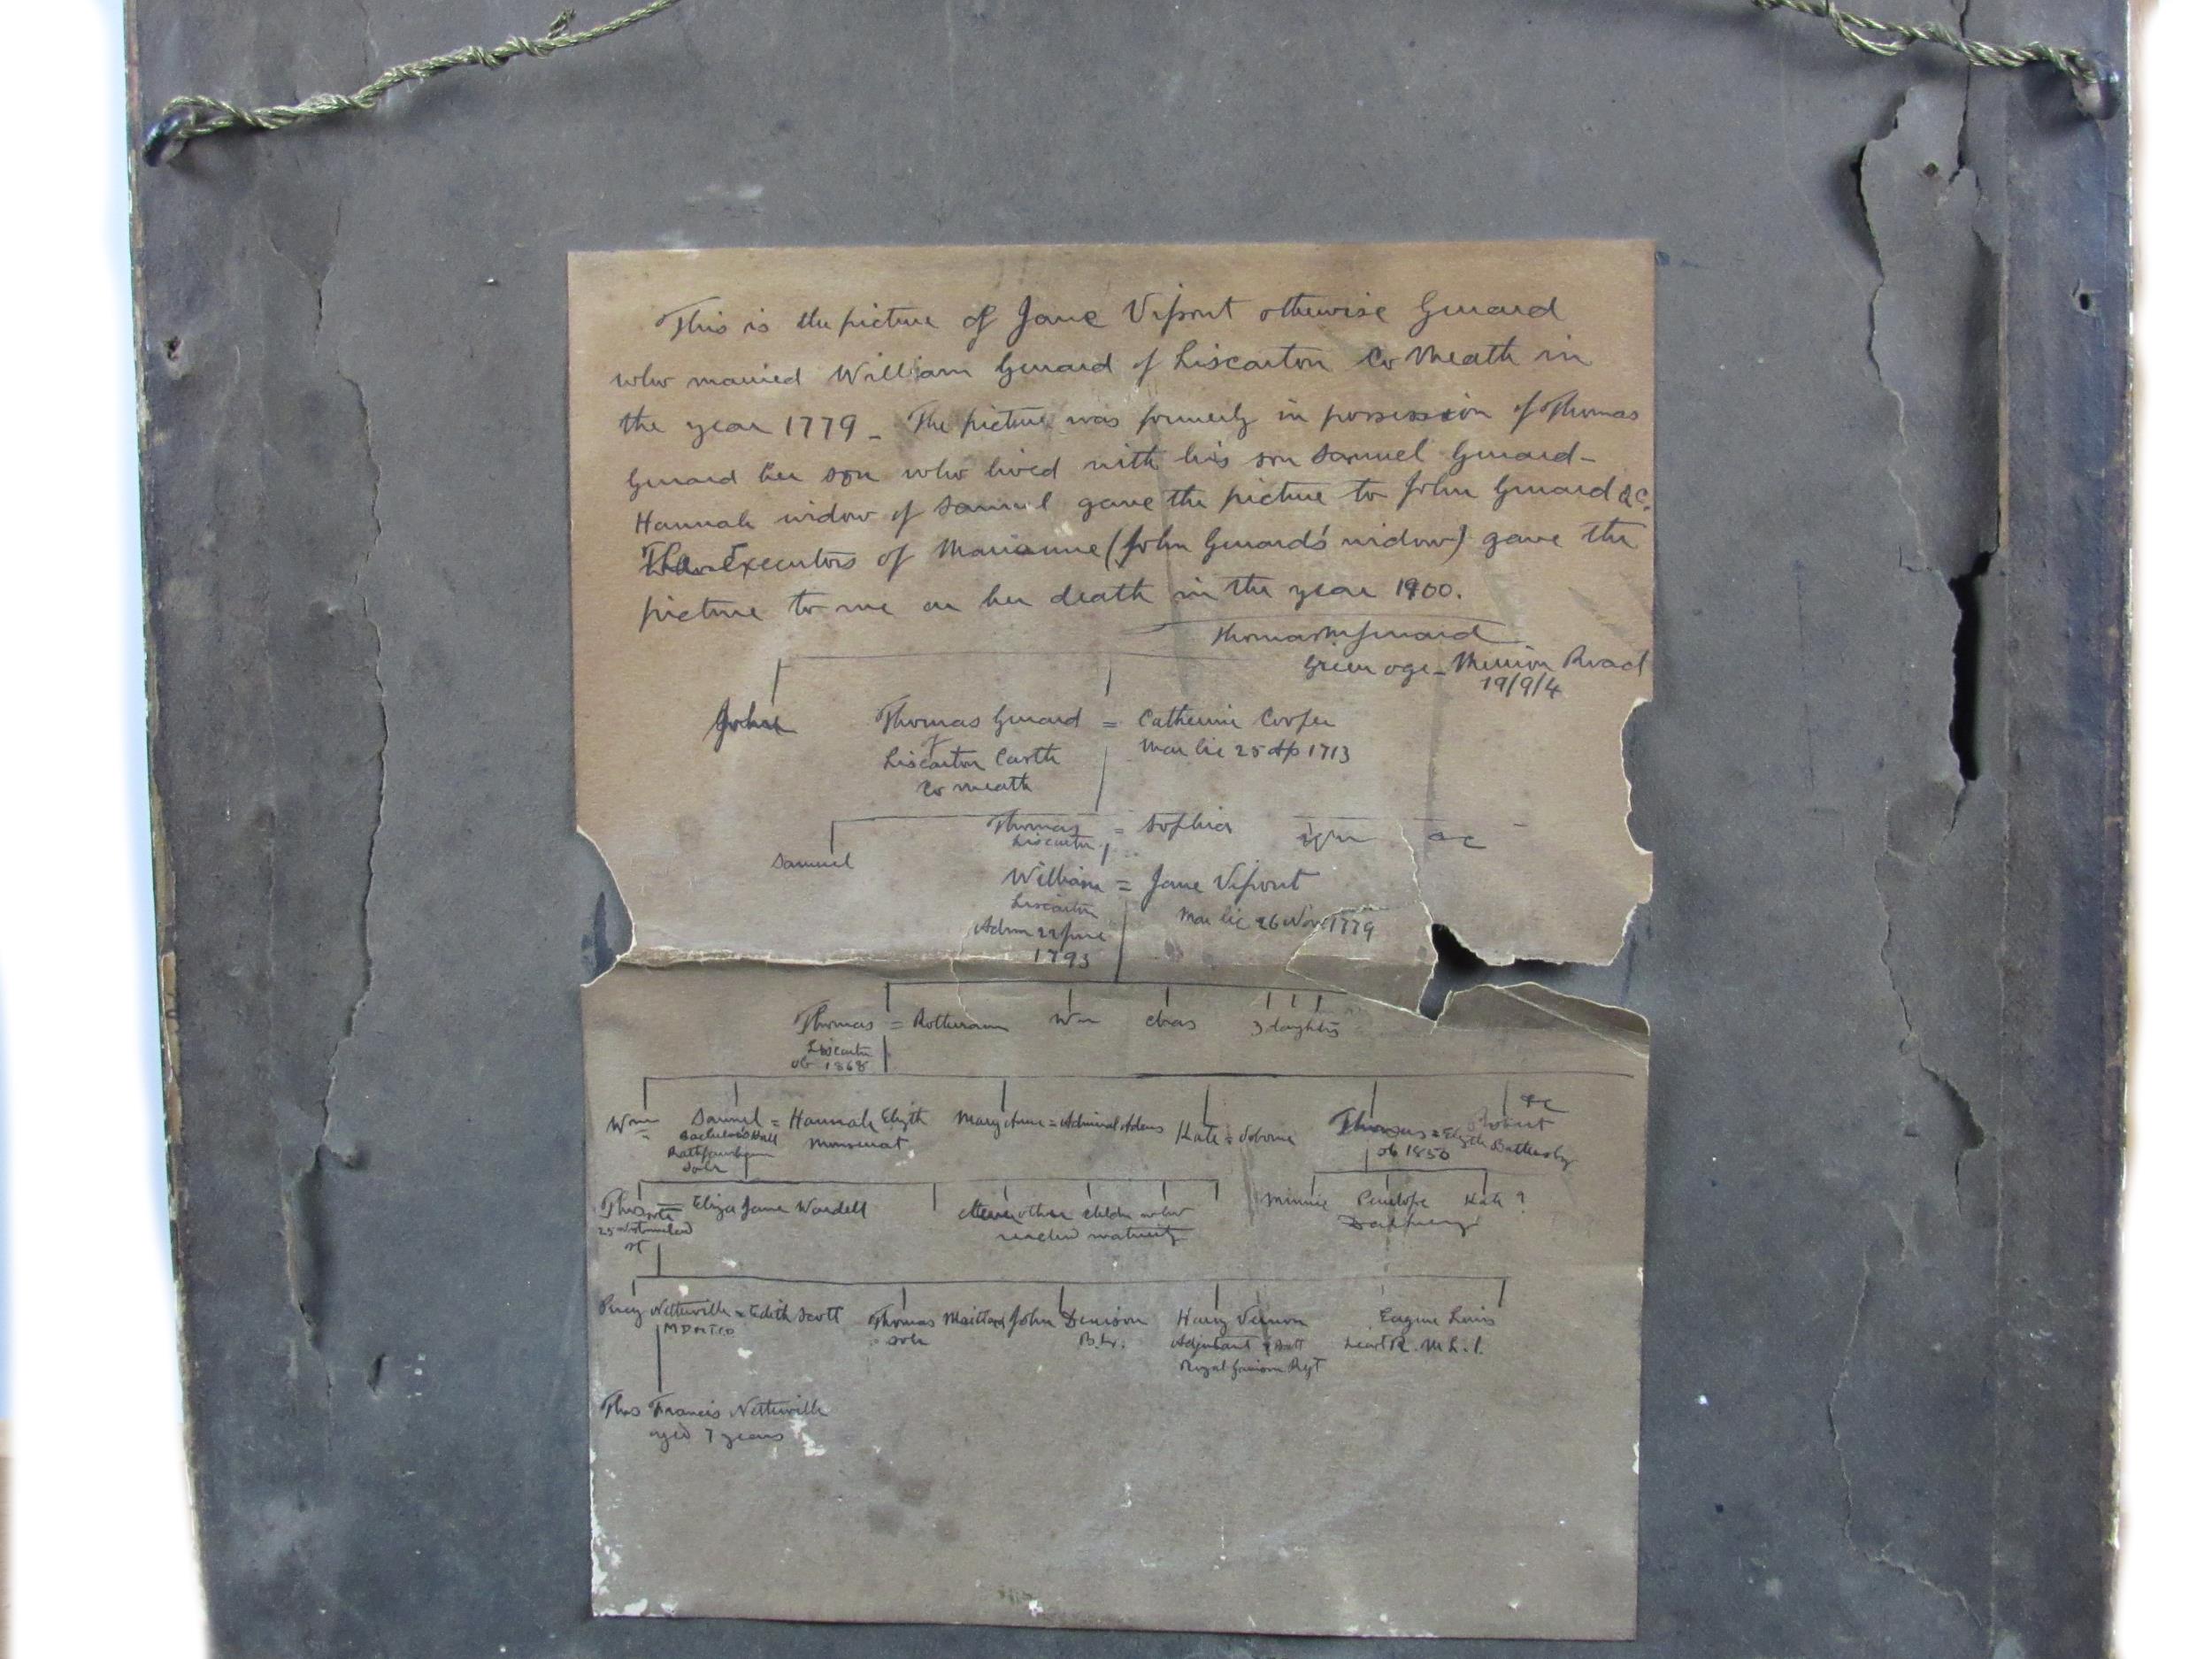 This is the picture of Jane Vipont otherwise Gerrard
who married William Gerrard of Liscarton Co Meath in
the year 1779 _ The picture was formerly in possession of Thomas
Gerrard her son who lived with his son Samuel Gerrard -
Hannah widow of Samuel gave the picture to John Gerrard QC.
The Executors of Marianne (John Gerrard's widow) gave the
picture to me on her death in the year 1900.
Thomas Gerrard
Road
19/9/4
John Thomas Gerrard = Catherine Cooper
of Mar lic 25 Ap 1713
Liscarton Castle
Co Meath
Thomas = Sophia
Liscarton
Samuel
William = Jane Vipont
Liscarton Mar lic 26 Nov 1779
Admn 22 June
1793
Thomas = Rotheram Wm Chas 3 daughters
Liscarton
ob 1868
Wm Samuel = Hannah Elizth Mary Anne = Admiral Kate = Osborne Thomas = Elizth Battersby Robert &c
Rathfarnham ob 1850
Solr
Thos Eliza Jane Wardell other children who Minnie Penelope Kate ?
reached maturity
St
Percy Netterville = Edith Scott Thomas Maitland John Denison Harry Vernon Eugene Louis
MD MTCD Solr B.L. Adjutant Batt Lieut R.M.L.I.
Royal Regt
Thos Francis Netterville
aged 7 years